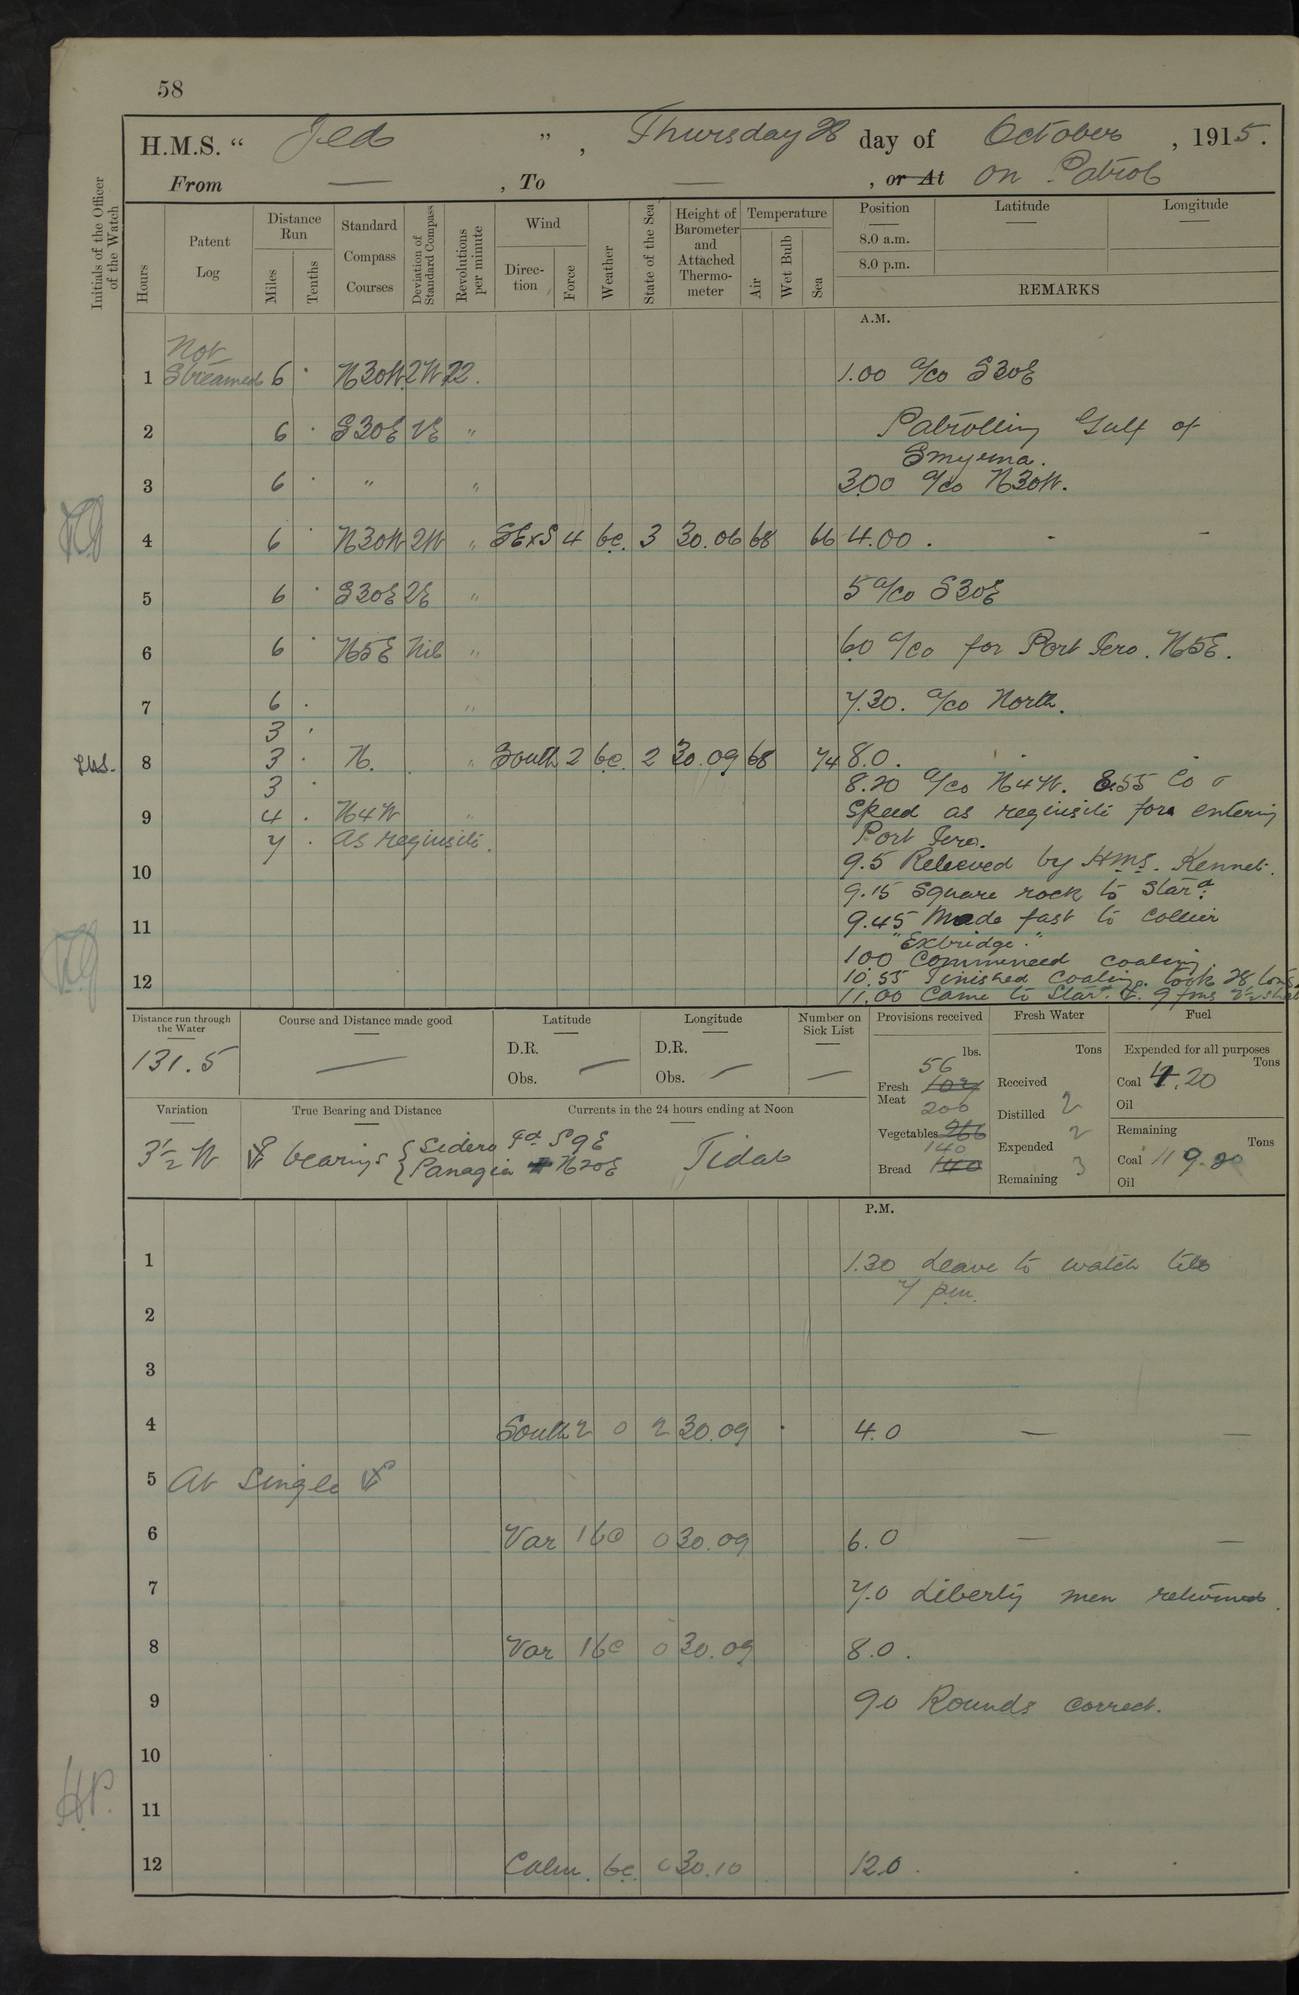 58
H.M.S. “ Jed ” , Thursday 28 day of October , 1915.
From — , To — , or At On Patrol
Initials of the Officer of the Watch
Hours
Patent Log
Distance Run
Miles
Tenths
Standard Compass Courses
Deviation of Standard Compass
Revolutions per minute
Wind
Direction
Force
Weather
State of the Sea
Height of Barometer and Attached Thermometer
Temperature
Air
Wet Bulb
Sea
Position
Latitude
Longitude
8.0 a.m.
8.0 p.m.
REMARKS
A.M.
Not
1 Streamed 6 · N30W 2W 72. 1.00 a/co S30E
2 6 · S30E 2E " Patrolling Gulf of
Smyrna.
3 6 · " " 3.00 a/co N30W.
4 6 · N30W 2W " SExS 4 bc. 3 30.06 68 66 4.00 . - -
5 6 · S30E 2E " 5 a/co S30E
6 6 · N5E Nil " 6.0 a/co for Port Iero. N5E.
7 6 · " 7.30. a/co North.
3 ·
8 3 · N. " South 2 bc. 2 30.09 68 74 8.0 .
3 · 8.20 a/co N4W. 8.55 Co &
9 4 · N4W " Speed as requisite for entering
7 · as requisite. Port Iero.
10 9.5 Relieved by HMS. Kennet.
9.15 Square rock to Stard.
11 9.45 Made fast to collier
"Exbridge."
10.0 Commenced coaling.
12 10.55 Finished coaling. took 28 tons
11.00 Came to Star. 9 fms
Distance run through the Water
131.5
Course and Distance made good
—
Latitude
D.R.
Obs. —
Longitude
D.R.
Obs. —
Number on Sick List
—
Variation
3½ W
True Bearing and Distance
bearings { Sidero Fd. S9E
{ Panagia N20E
Currents in the 24 hours ending at Noon
Tidal
Provisions received
lbs.
56
Fresh Meat 102
200
Vegetables 266
140
Bread 140
Fresh Water
Tons
Received
Distilled 2
Expended 2
Remaining 3
Fuel
Expended for all purposes
Tons
Coal 4.20
Oil
Remaining
Tons
Coal 119.20
Oil
P.M.
1 1.30 Leave to watch till
7 pm.
2
3
4 South 2 o 2 30.09 · 4.0 — —
5 At Single
6 Var 1 bc 0 30.09 6.0 — —
7 7.0 Liberty men returned.
8 Var 1 bc 0 30.09 8.0 .
9 9.0 Rounds correct.
10
HP.
11
12 Calm. bc. 0 30.10 12.0 .